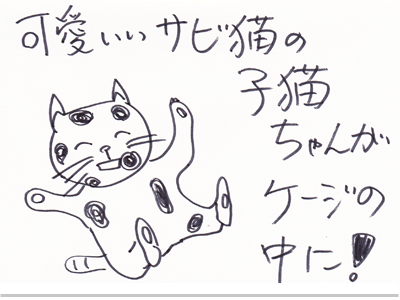 可愛いいサビ猫の
子猫
ちゃんが
ケージの
中に!